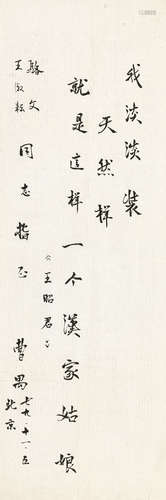 我淡淡装
天然样
就是这样一个漢家姑娘
《王昭君》
骆文
王淑耘
同志指正
曹禺
七九、十一、五
北京